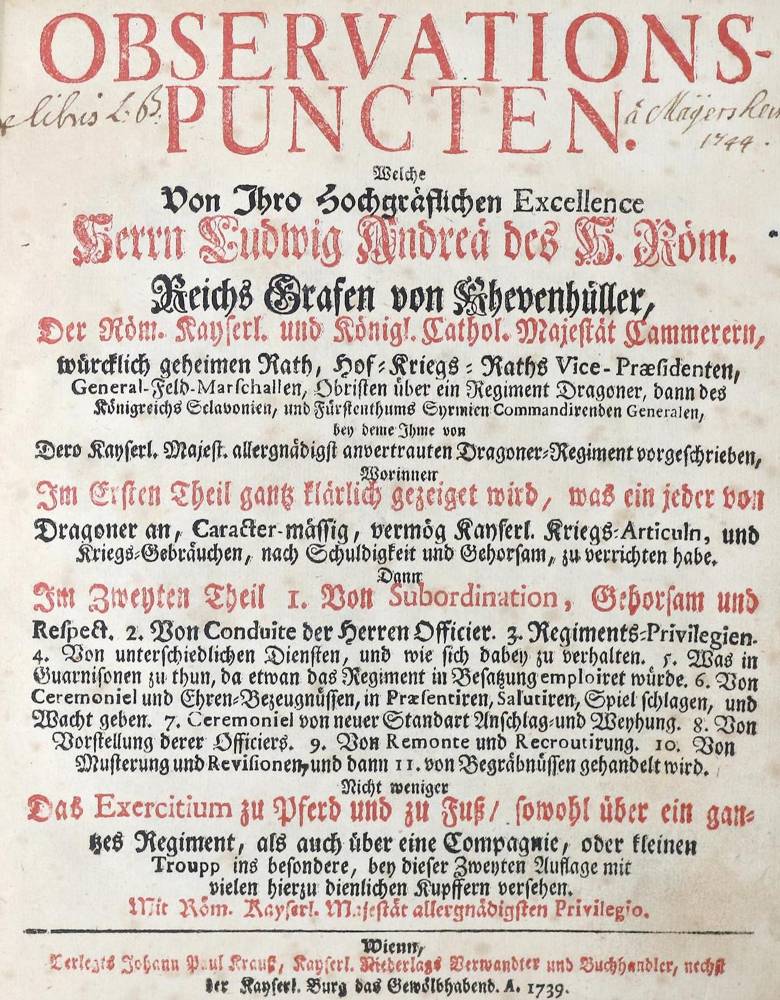 OBSERVATIONS-
PUNCTEN.
libris L. B.
à Mayershein
1744.
Welche
Von Ihro Hochgräflichen Excellence
Herrn Ludwig Andreä des H. Röm.
Reichs Grafen von Khevenhüller,
Der Röm. Kayserl. und Königl. Cathol. Majestät Cammerern,
würcklich geheimen Rath, Hof-Kriegs-Raths Vice-Præsidenten,
General-Feld-Marschallen, Obristen über ein Regiment Dragoner, dann des
Königreichs Sclavonien, und Fürstenthums Syrmien Commandirenden Generalen,
bey deme Ihme von
Dero Kayserl. Majest. allergnädigst anvertrauten Dragoner-Regiment vorgeschrieben,
Worinnen
Im Ersten Theil gantz klärlich gezeiget wird, was ein jeder von
Dragoner an, Caracter-mässig, vermög Kayserl. Kriegs-Articuln, und
Kriegs-Gebräuchen, nach Schuldigkeit und Gehorsam, zu verrichten habe.
Dann
Im Zweyten Theil 1. Von Subordination, Gehorsam und
Respect. 2. Von Conduite der Herren Officier. 3. Regiments-Privilegien.
4. Von unterschiedlichen Diensten, und wie sich dabey zu verhalten. 5. Was in
Guarnisonen zu thun, da etwan das Regiment in Besatzung emploiret würde. 6. Von
Ceremoniel und Ehren-Bezeugnüssen, in Præsentiren, Salutiren, Spiel schlagen, und
Wacht geben. 7. Ceremoniel von neuer Standart Anschlag-und Weyhung. 8. Von
Vorstellung derer Officiers. 9. Von Remonte und Recroutirung. 10. Von
Musterung und Revisionen, und dann 11. von Begräbnüssen gehandelt wird.
Nicht weniger
Das Exercitium zu Pferd und zu Fuß/ sowohl über ein gan-
tzes Regiment, als auch über eine Compagnie, oder kleinen
Troupp ins besondere, bey dieser Zweyten Auflage mit
vielen hierzu dienlichen Kupffern versehen.
Mit Röm. Kayserl. Majestät allergnädigsten Privilegio.
Wienn,
Verlegts Johann Paul Krauß, Kayserl. Niederlags Verwandter und Buchhandler, nechst
der Kayserl. Burg das Gewölbhabend. A. 1739.